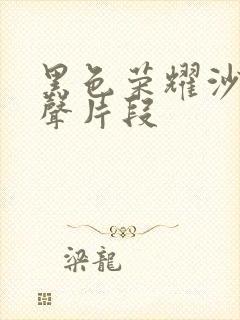 黑色荣耀沙
聲片段
梁龍